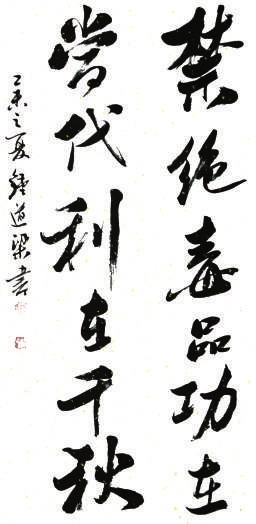 禁绝毒品功在
當代利在千秋
乙未之夏鍾道梁書